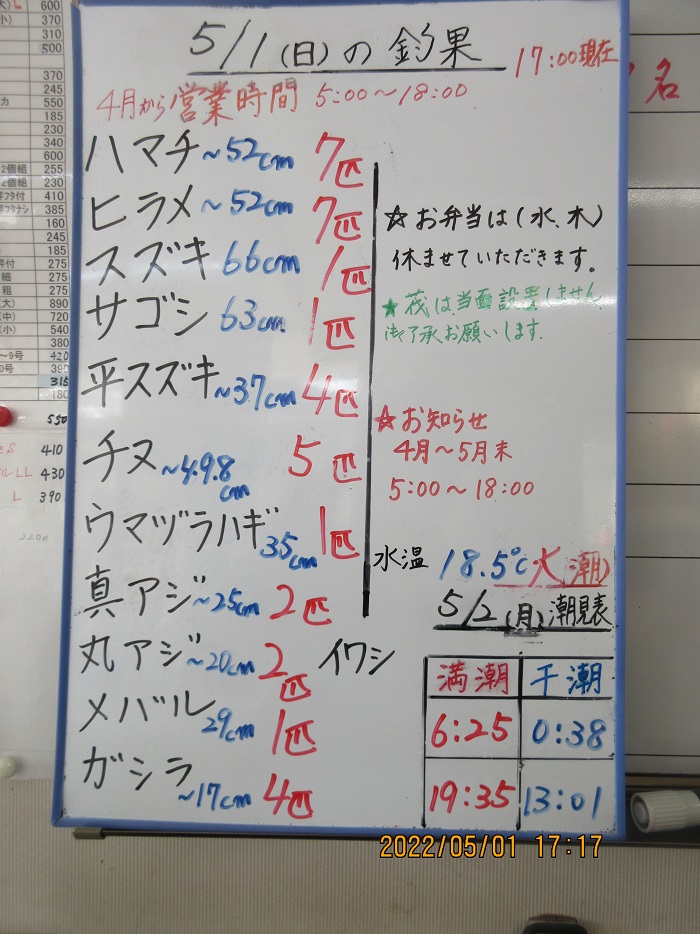 5/1(日)の釣果
17:00現在
4月から営業時間 5:00～18:00
ハマチ ～52cm 7匹
ヒラメ ～52cm 7匹
スズキ 66cm 1匹
サゴシ 63cm 1匹
平スズキ ～37cm 4匹
チヌ ～49.8cm 5匹
ウマヅラハギ 35cm 1匹
真アジ ～25cm 2匹
丸アジ ～20cm 2匹 イワシ
メバル 29cm 1匹
ガシラ ～17cm 4匹
☆お弁当は(水、木)
休ませていただきます.
★筏は、当面設置しません
御了承お願いします.
☆お知らせ
4月～5月末
5:00～18:00
水温 18.5℃ 大(潮)
5/2(月)潮見表
満潮 干潮
6:25 0:38
19:35 13:01
2022/05/01 17:17
名
600
370
310
500
370
245
550
185
230
340
600
2個組 255
2個組 230
フタ付 410
フタナシ 385
160
245
185
275
細 275
粗 275
(大) 890
(中) 720
(小) 540
380
～9号 420
390
315
180
550
410
LL 430
L 390